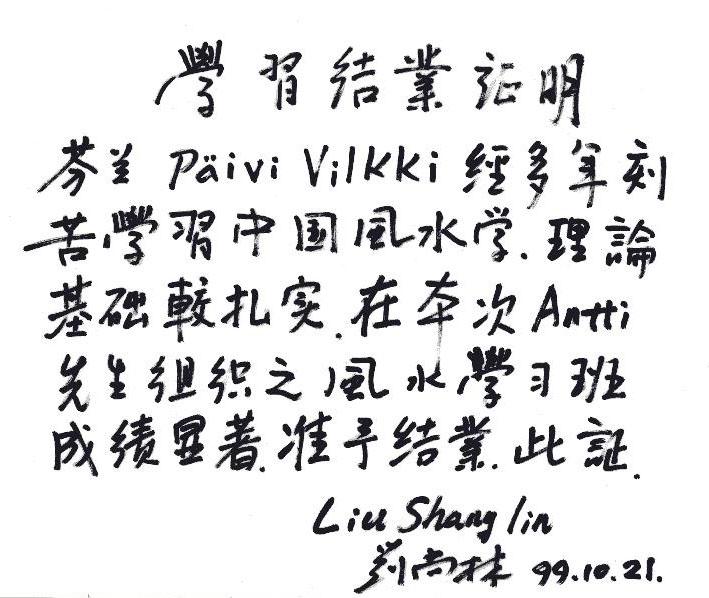 學習结業证明
芬兰 Päivi Vilkki 經多年刻
苦學習中国風水学.理論
基础較扎实.在本次Antti
先生组织之風水學习班
成績显著.准予结業.此証.
Liu Shang lin
刘尚林 99.10.21.